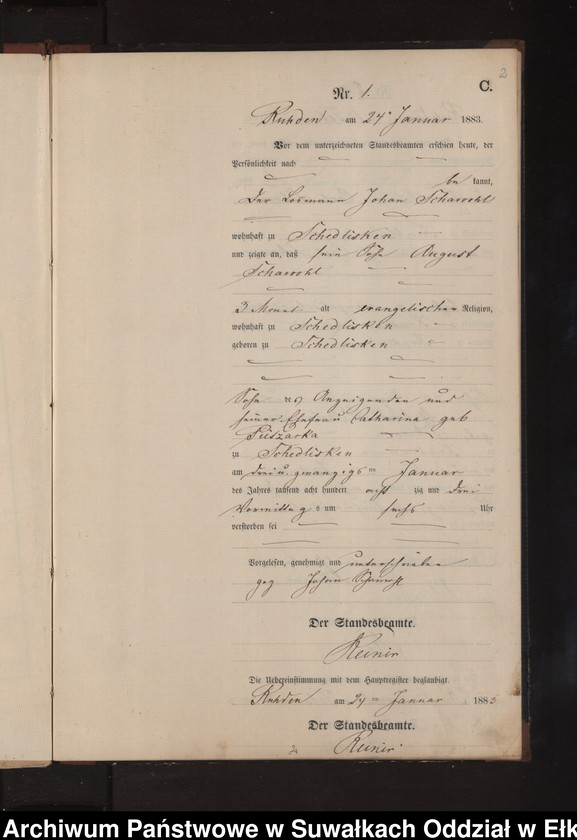 2
C.
Nr. 1.
Ruhden am 24ten Januar 1883.
Vor dem unterzeichneten Standesbeamten erschien heute, der
Persönlichkeit nach
be kannt,
Der Losmann Johan Schawohl
wohnhaft zu Schedlisken
und zeigte an, daß sein Sohn August
Schawohl
3 Monat alt evangelischer Religion,
wohnhaft zu Schedlisken
geboren zu Schedlisken
Sohn des Anzeigenden und
seiner Ehefrau Catharina geb
Piszarka
zu Schedlisken
am drei u. zwanzigsten Januar
des Jahres tausend acht hundert acht zig und drei
Vormittags um sechs Uhr
verstorben sei
Vorgelesen, genehmigt und unterschrieben
gez Johan Schawohl
Der Standesbeamte.
Die Uebereinstimmung mit dem Hauptregister beglaubigt.
Ruhden am 24ten Januar 1883
Der Standesbeamte.
Archiwum Państwowe w Suwałkach Oddział w Ełk